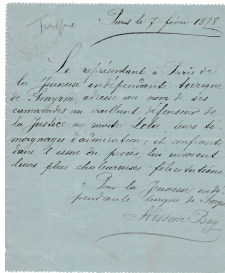 Turquie
Paris le 7 févrie 1898
Le représentant à Paris de
la Jeunesse indépendante turque
de Smyrne, adresse au nom de ses
camarades au vaillant défenseur de
la Justice au monde Zola leurs té-
moignages d'admiration; et confiants
dans l'issue du procès lui envoient
leurs plus chaleureuses félicitations
Pour la Jeunesse indé-
pendante turque de Smyrne
Bey